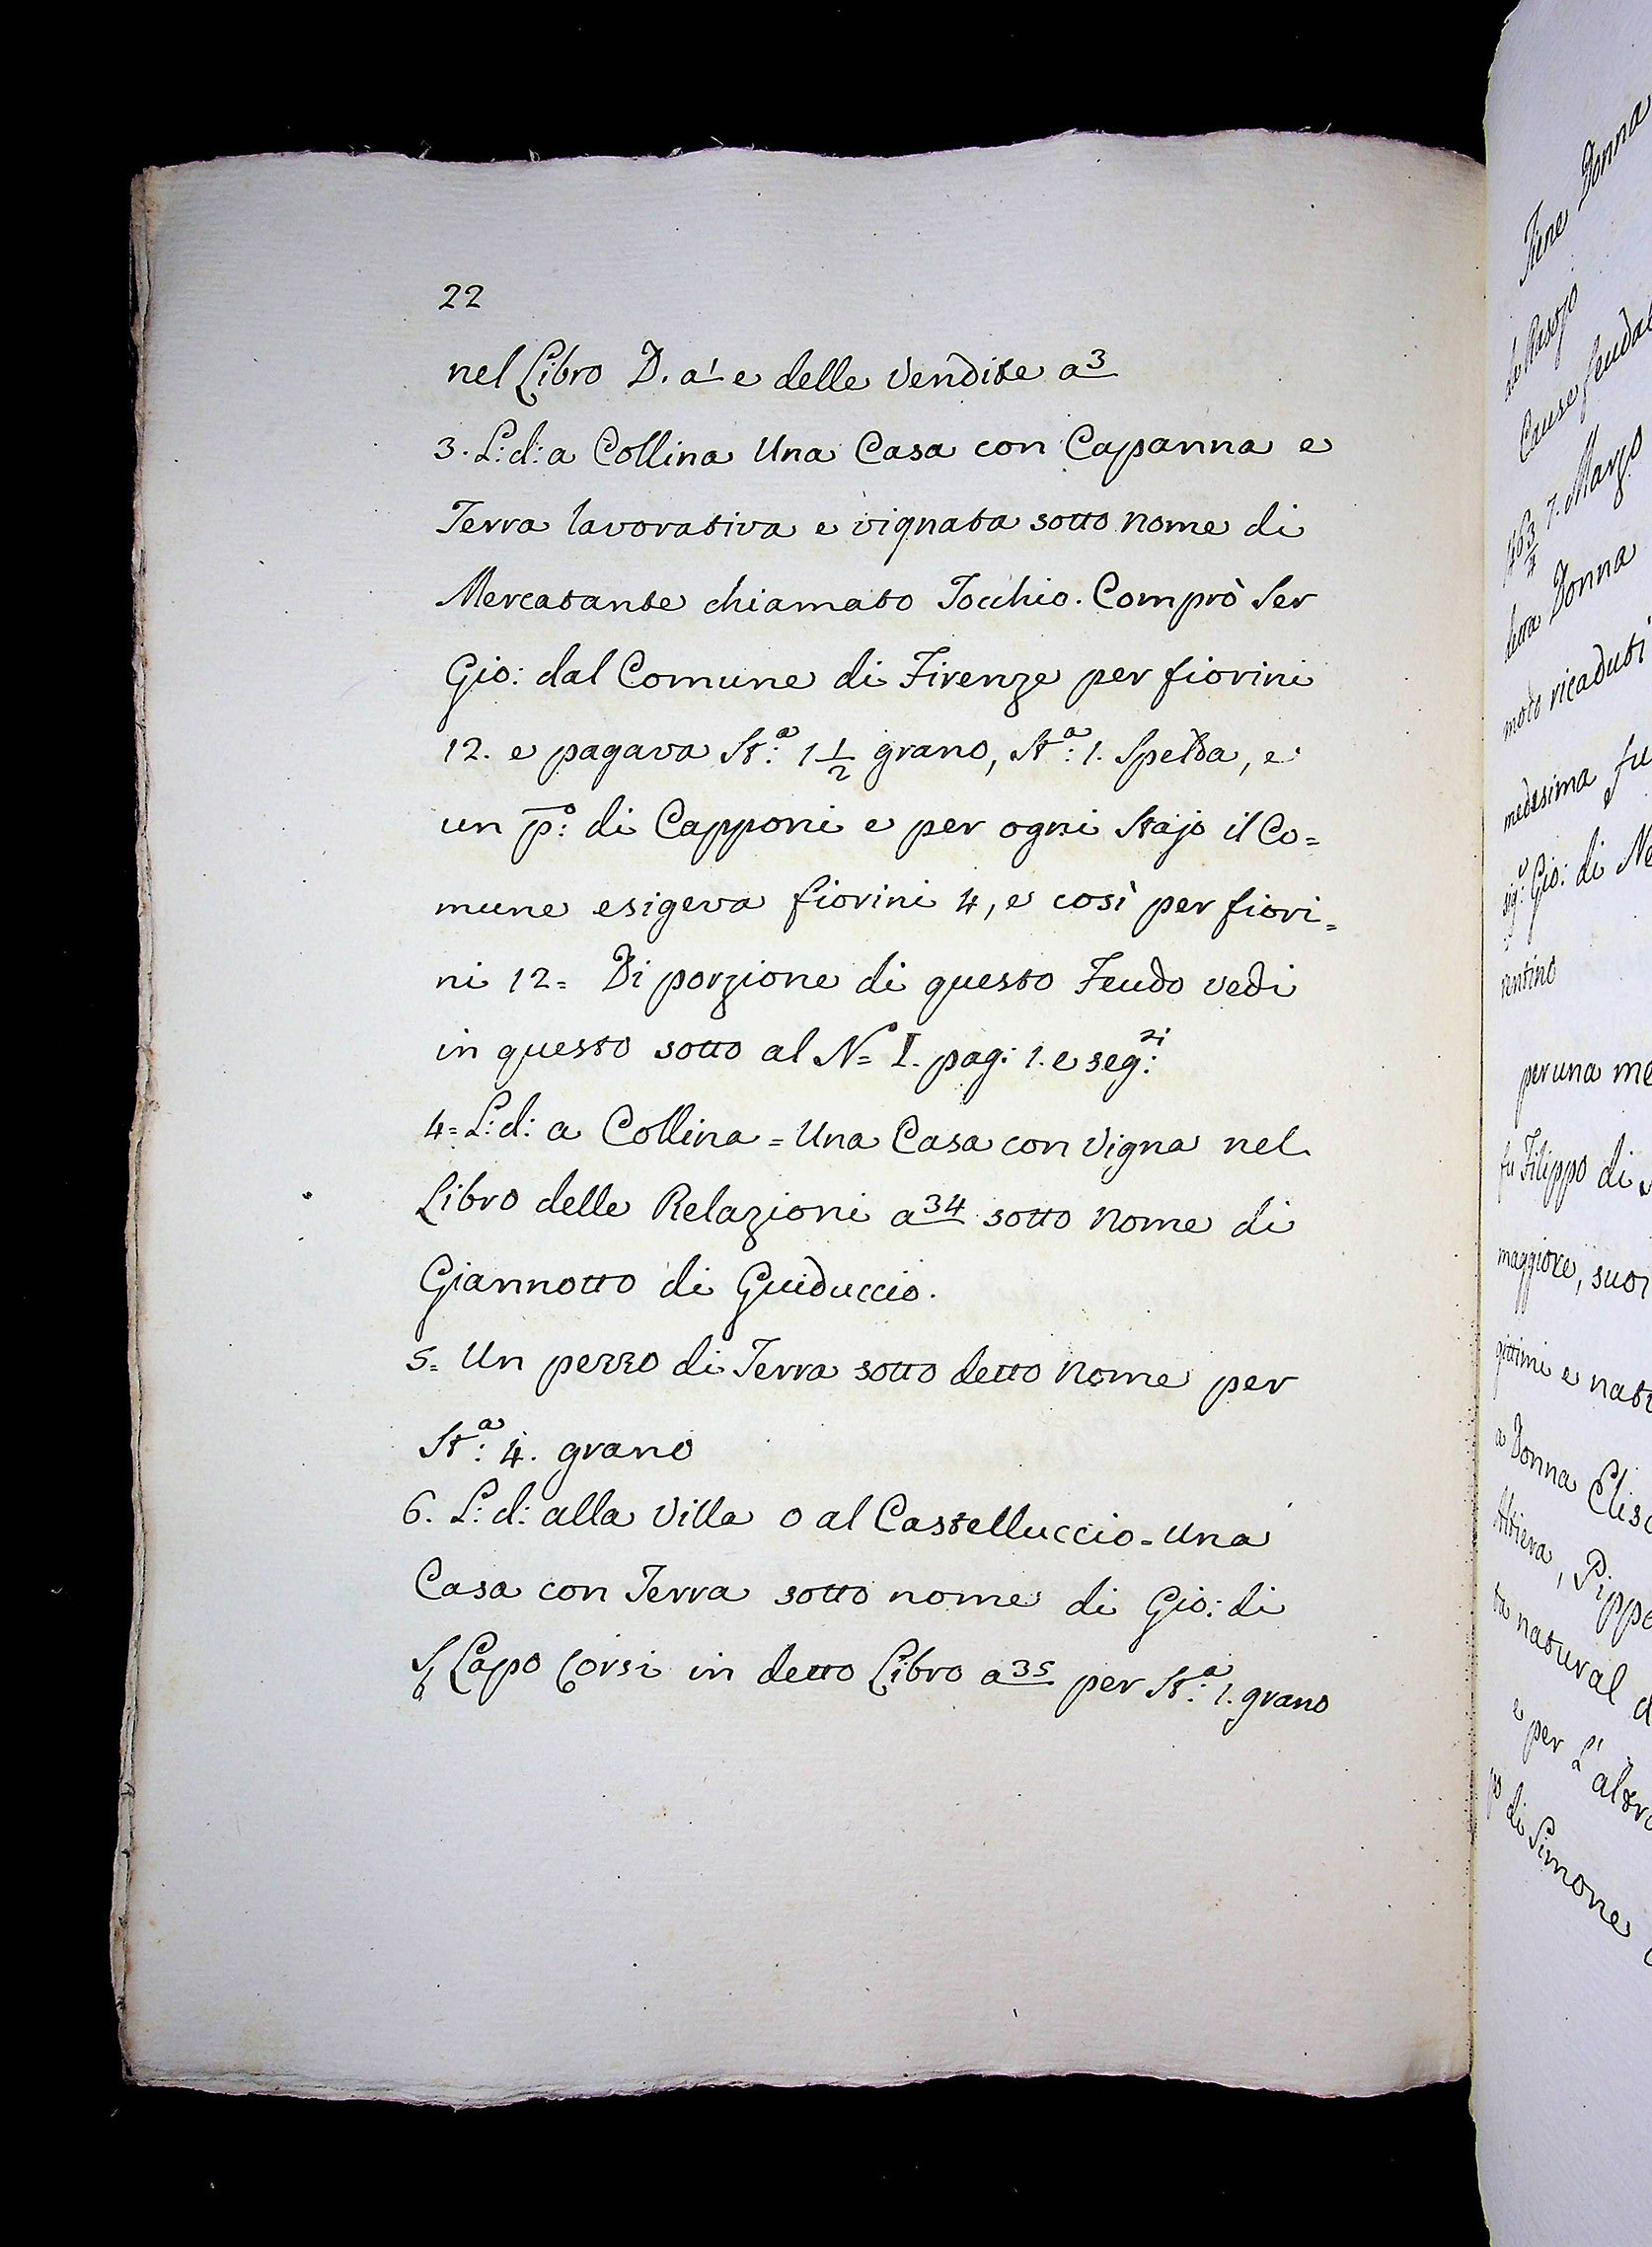 22
nel Libro D. a 1 e delle Vendite a 3
3. L: d: a Collina Una Casa con Capanna e
Terra lavorativa e vignata sotto nome di
Mercatante chiamato Tocchio. Comprò Ser
Gio: dal Comune di Firenze per fiorini
12. e pagava St.ª: 1 1/2 grano, St.ª: 1. Spelda, e
un p̄º: di Capponi e per ogni Stajo il Co=
mune esigeva fiorini 4, e così per fiori=
ni 12= Di porzione di questo Feudo vedi
in questo sotto al Nº= I. pag: 1. e seg:ti
4= L: d: a Collina = Una Casa con Vigna nel
Libro delle Relazioni a 34 sotto nome di
Giannotto di Guiduccio.
5= Un pezzo di Terra sotto detto nome per
St.ª: 4. grano
6. L: d: alla Villa o al Castelluccio = Una
Casa con Terra sotto nome di Gio: di
Lapo Corsi in detto Libro a 35 per St.ª: 1. grano
Donna
Cause feudal
1463/4 7. Marzo
Donna
ricaduti
medesima fu
sig:r Gio: di
per una me
fu Filippo di
maggiore, suoi
gittimi e nat
a Donna Elis
Pipp
natural
e per L'altr
di Simone